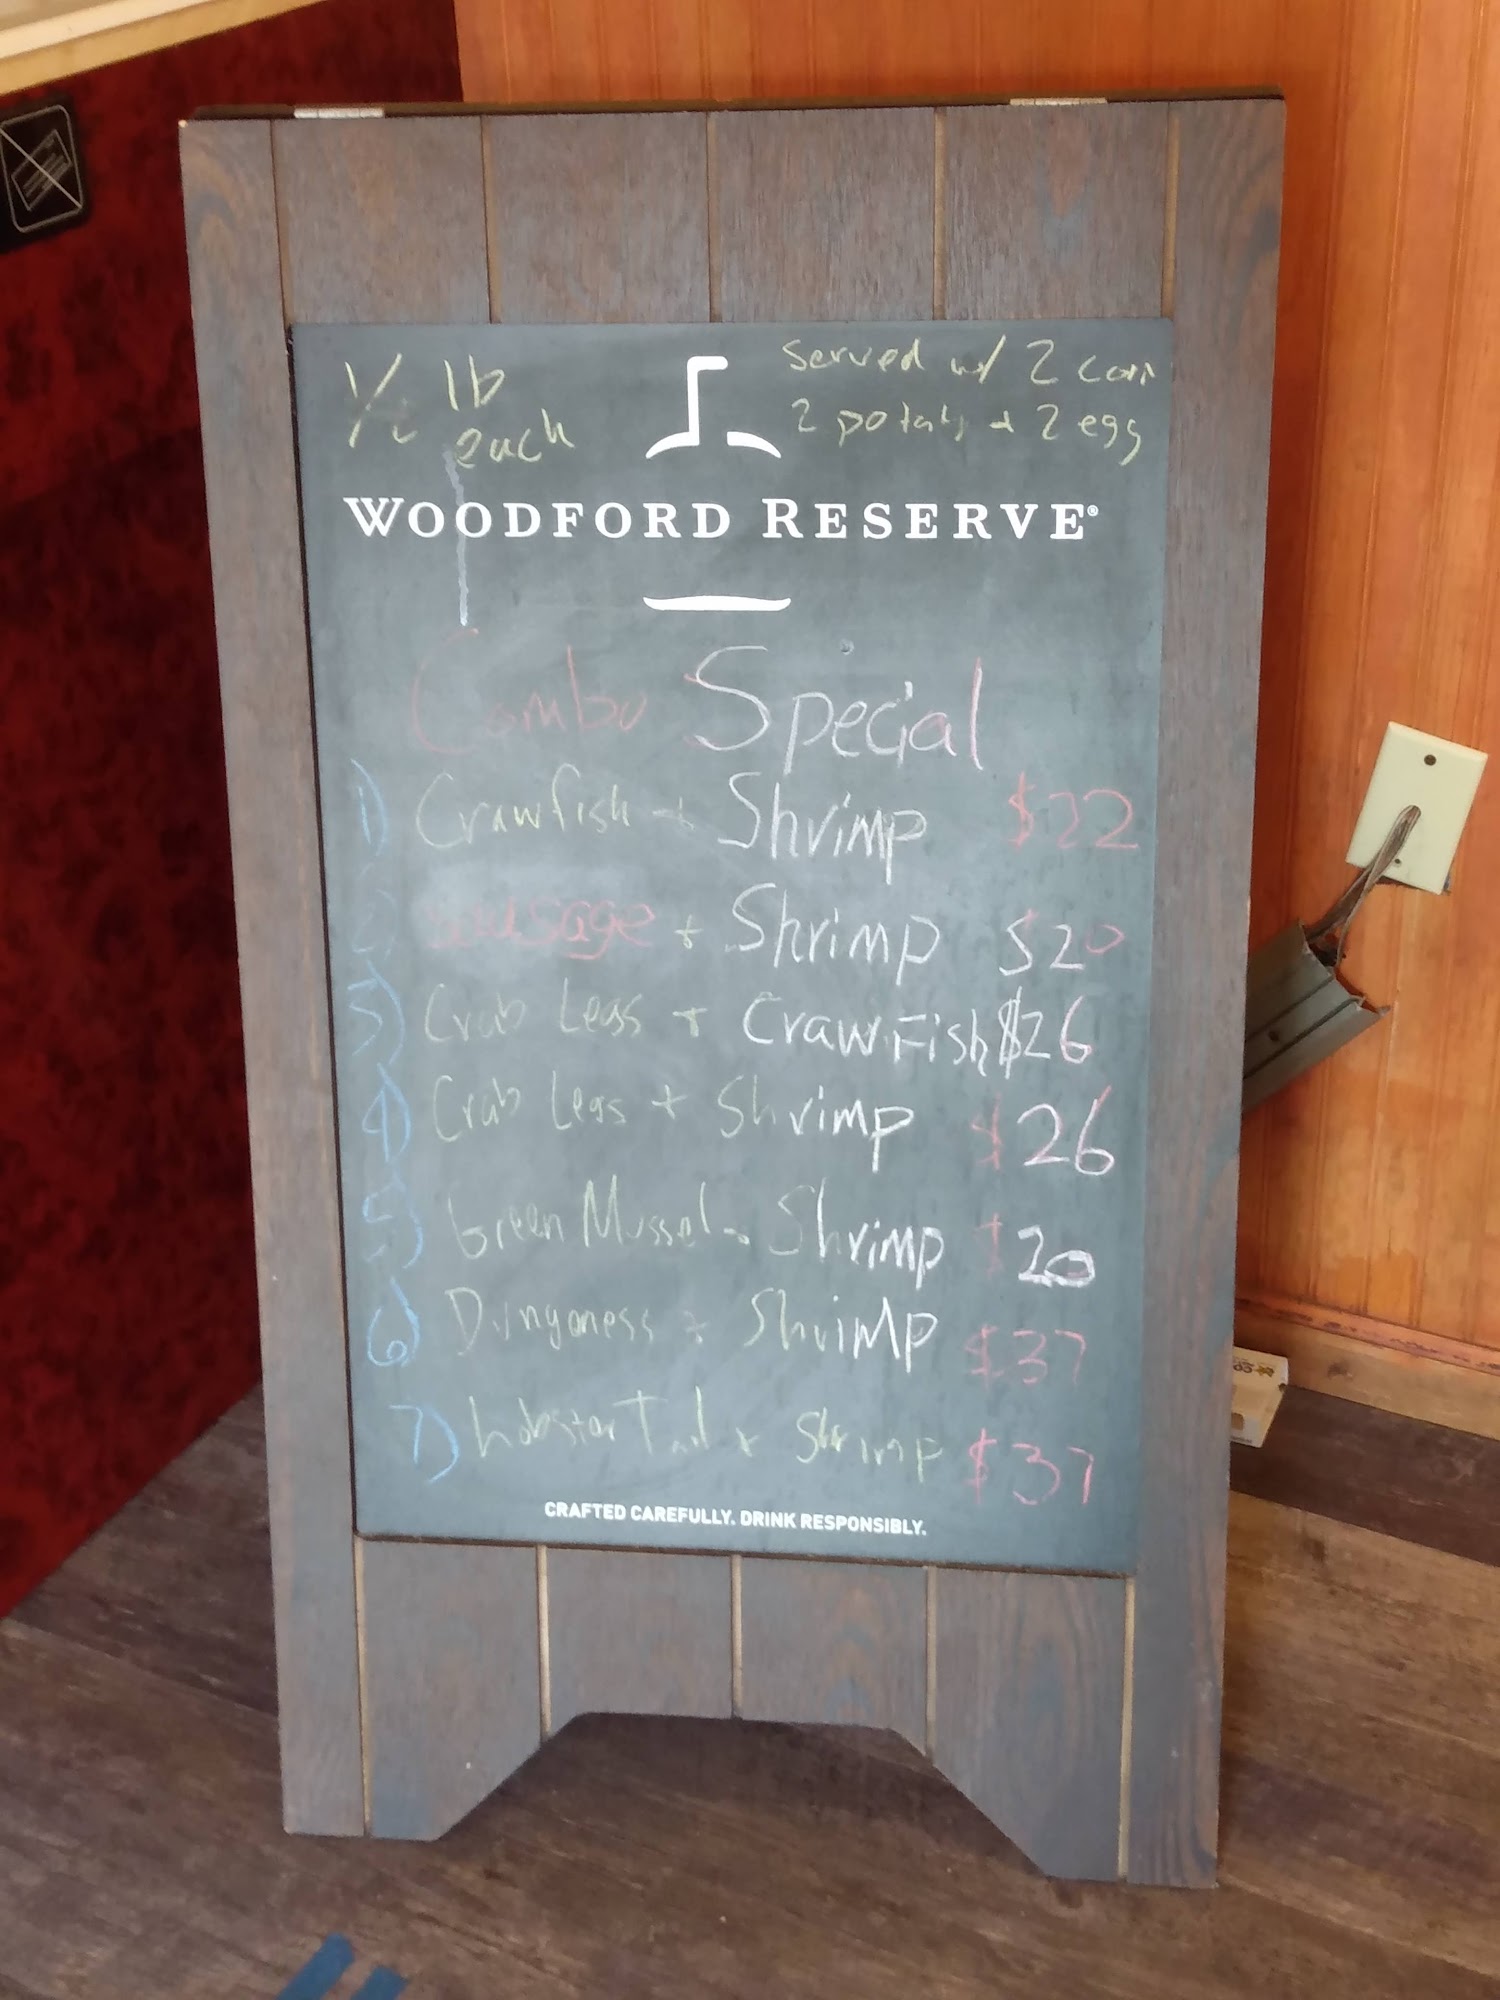 1/2 lb
each
served w/ 2 corn
2 potato + 2 egg
WOODFORD RESERVE®
Combo Special
1) Crawfish + Shrimp $22
2) Sausage + Shrimp $20
3) Crab Legs + CrawFish $26
4) Crab Legs + Shrimp $26
5) Green Mussel + Shrimp $20
6) Dungeness + Shrimp $37
7) Lobster Tail + Shrimp $37
CRAFTED CAREFULLY. DRINK RESPONSIBLY.